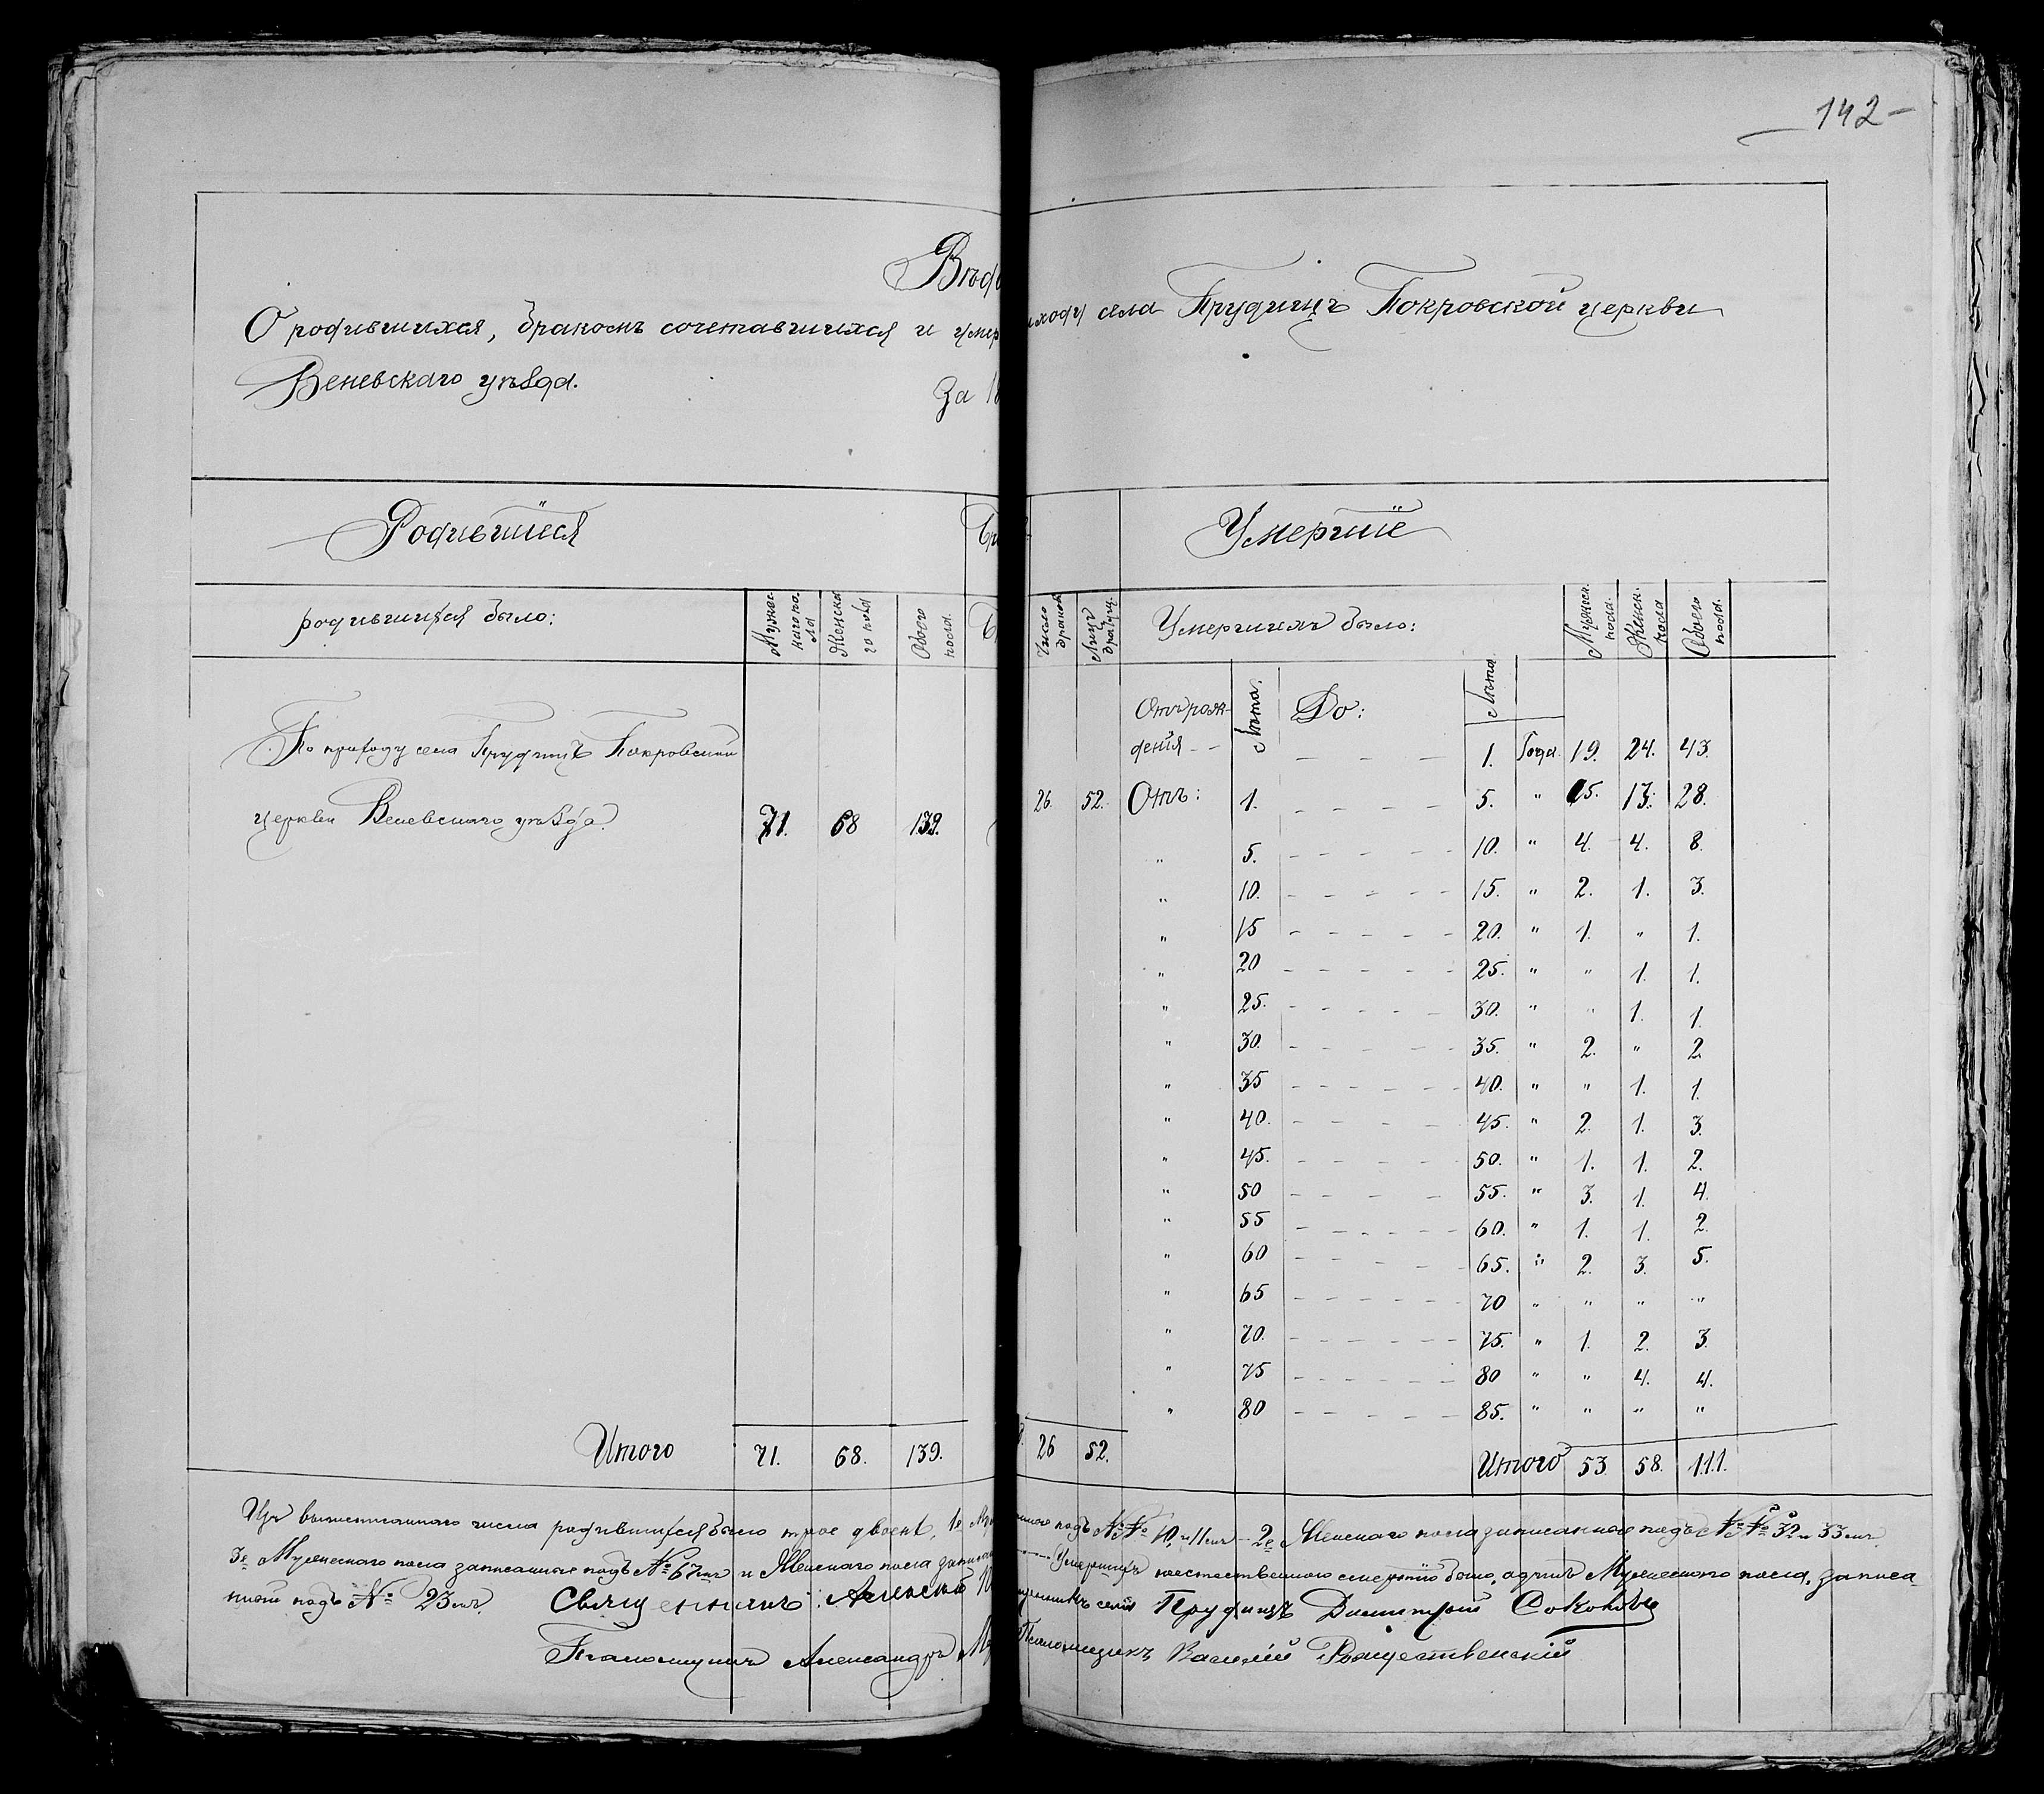 142
Вѣдо
О родившихся, бракомъ сочетавшихся и умер
Веневскаго уѣзда.
За 18
Родившіеся
родившихся было:
Мужескаго пола
Женскаго пола
Обоего пола.
По приходу села Прудищъ Покровской
церкви Веневскаго уѣзда. 71. 68 139.
Итого 71. 68. 139.
Изъ вышеписаннаго числа родившихся было трое двоенъ, 1е Му
3е Мужескаго пола записанное подъ № 67мъ и Женскаго пола записан
ной подъ № 23мъ. Священникъ: Алексей
Псаломщикъ Александръ
иходу села Прудищъ Покровской церкви
Умершіе
Число браковъ
Лицъ
Умершихъ было:
Мужеск. пола.
Женск. пола
Обоего пола.
Отъ рож-
Лѣта. До: Лѣта
денія - - 1. Года. 19. 24. 43.
26. 52. Отъ: 1. 5. " 15. 13. 28.
" 5. 10. " 4. 4. 8.
" 10. 15. " 2. 1. 3.
" 15 20. " 1. " 1.
" 20 25. " " 1. 1.
" 25. 30. " " 1. 1.
" 30. 35. " 2. " 2
" 35 40. " " 1. 1.
" 40. 45. " 2. 1. 3.
" 45. 50. " 1. 1. 2.
" 50 55. " 3. 1. 4.
" 55 60. " 1. 1. 2.
" 60 65. " 2. 3. 5.
" 65 70 " " " "
" 70. 75. " 1. 2. 3.
" 75 80 " " 4. 4.
" 80 85. " " " "
26 52. Итого 53 58. 111.
подъ №№ 10 и 11мъ - 2е Женскаго пола записанное подъ №№ 32 и 33мъ
Умершихъ неестественною смертію было, одинъ Мужескаго пола, записа-
села Прудищъ Димитрій Соколовъ
Псаломщикъ Василій Рождественскій